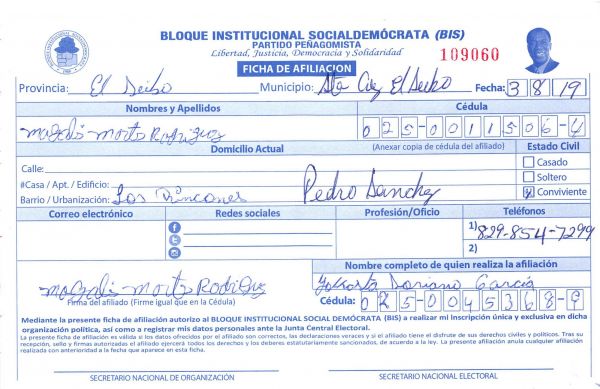 BLOQUE INSTITUCIONAL SOCIALDEMÓCRATA (BIS)
PARTIDO PEÑAGOMISTA
Libertad, Justicia, Democracia y Solidaridad
109060
FICHA DE AFILIACION
Provincia: El Seibo Municipio: Sta Cruz El Seibo Fecha: 3/8/19
Nombres y Apellidos Cédula
Magalis Morto Rodriguez 025-0011506-4
Domicilio Actual (Anexar copia de cédula del afiliado) Estado Civil
Calle: Casado
#Casa / Apt. / Edificio: Pedro Sanchez Soltero
Barrio / Urbanización: Los Rincones Conviviente
Correo electrónico Redes sociales Profesión/Oficio Teléfonos
1) 829-854-7299
2)
Nombre completo de quien realiza la afiliación
Magalis Morto Rodriguez Soriano Garcia
Firma del afiliado (Firme igual que en la Cédula) Cédula: 025-0045368-9
Mediante la presente ficha de afiliación autorizo al BLOQUE INSTITUCIONAL SOCIAL DEMÓCRATA (BIS) a realizar mi inscripción única y exclusiva en dicha
organización política, así como a registrar mis datos personales ante la Junta Central Electoral.
La presente ficha de afiliación es válida si los datos ofrecidos por el afiliado son correctos, las declaraciones veraces y si el afiliado tiene el disfrute de sus derechos civiles y políticos. Tras su
recepción, sello y firmas autorizadas el afiliado ejercerá todos los derechos y los deberes estatutariamente sancionados, de acuerdo a la ley. La presente afiliación anula cualquier afiliación
realizada con anterioridad a la fecha que aparece en esta ficha.
SECRETARIO NACIONAL DE ORGANIZACIÓN SECRETARIO NACIONAL ELECTORAL